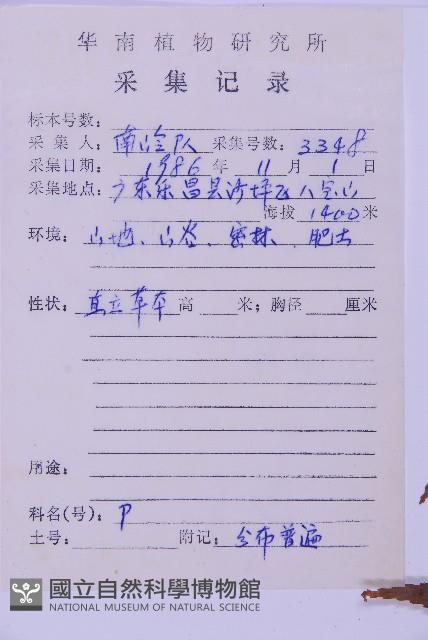 华南植物研究所
采集记录
标本号数：
采集人：南岭队 采集号数：3348
采集日期：1986年11月1日
采集地点：广东乐昌县沙坪区八宝山
海拔1400米
环境：山地、山谷、密林、肥土
性状：直立草本 高 米；胸径 厘米
用途：
科名(号)：P
土号： 附记：分布普遍
國立自然科學博物館
NATIONAL MUSEUM OF NATURAL SCIENCE